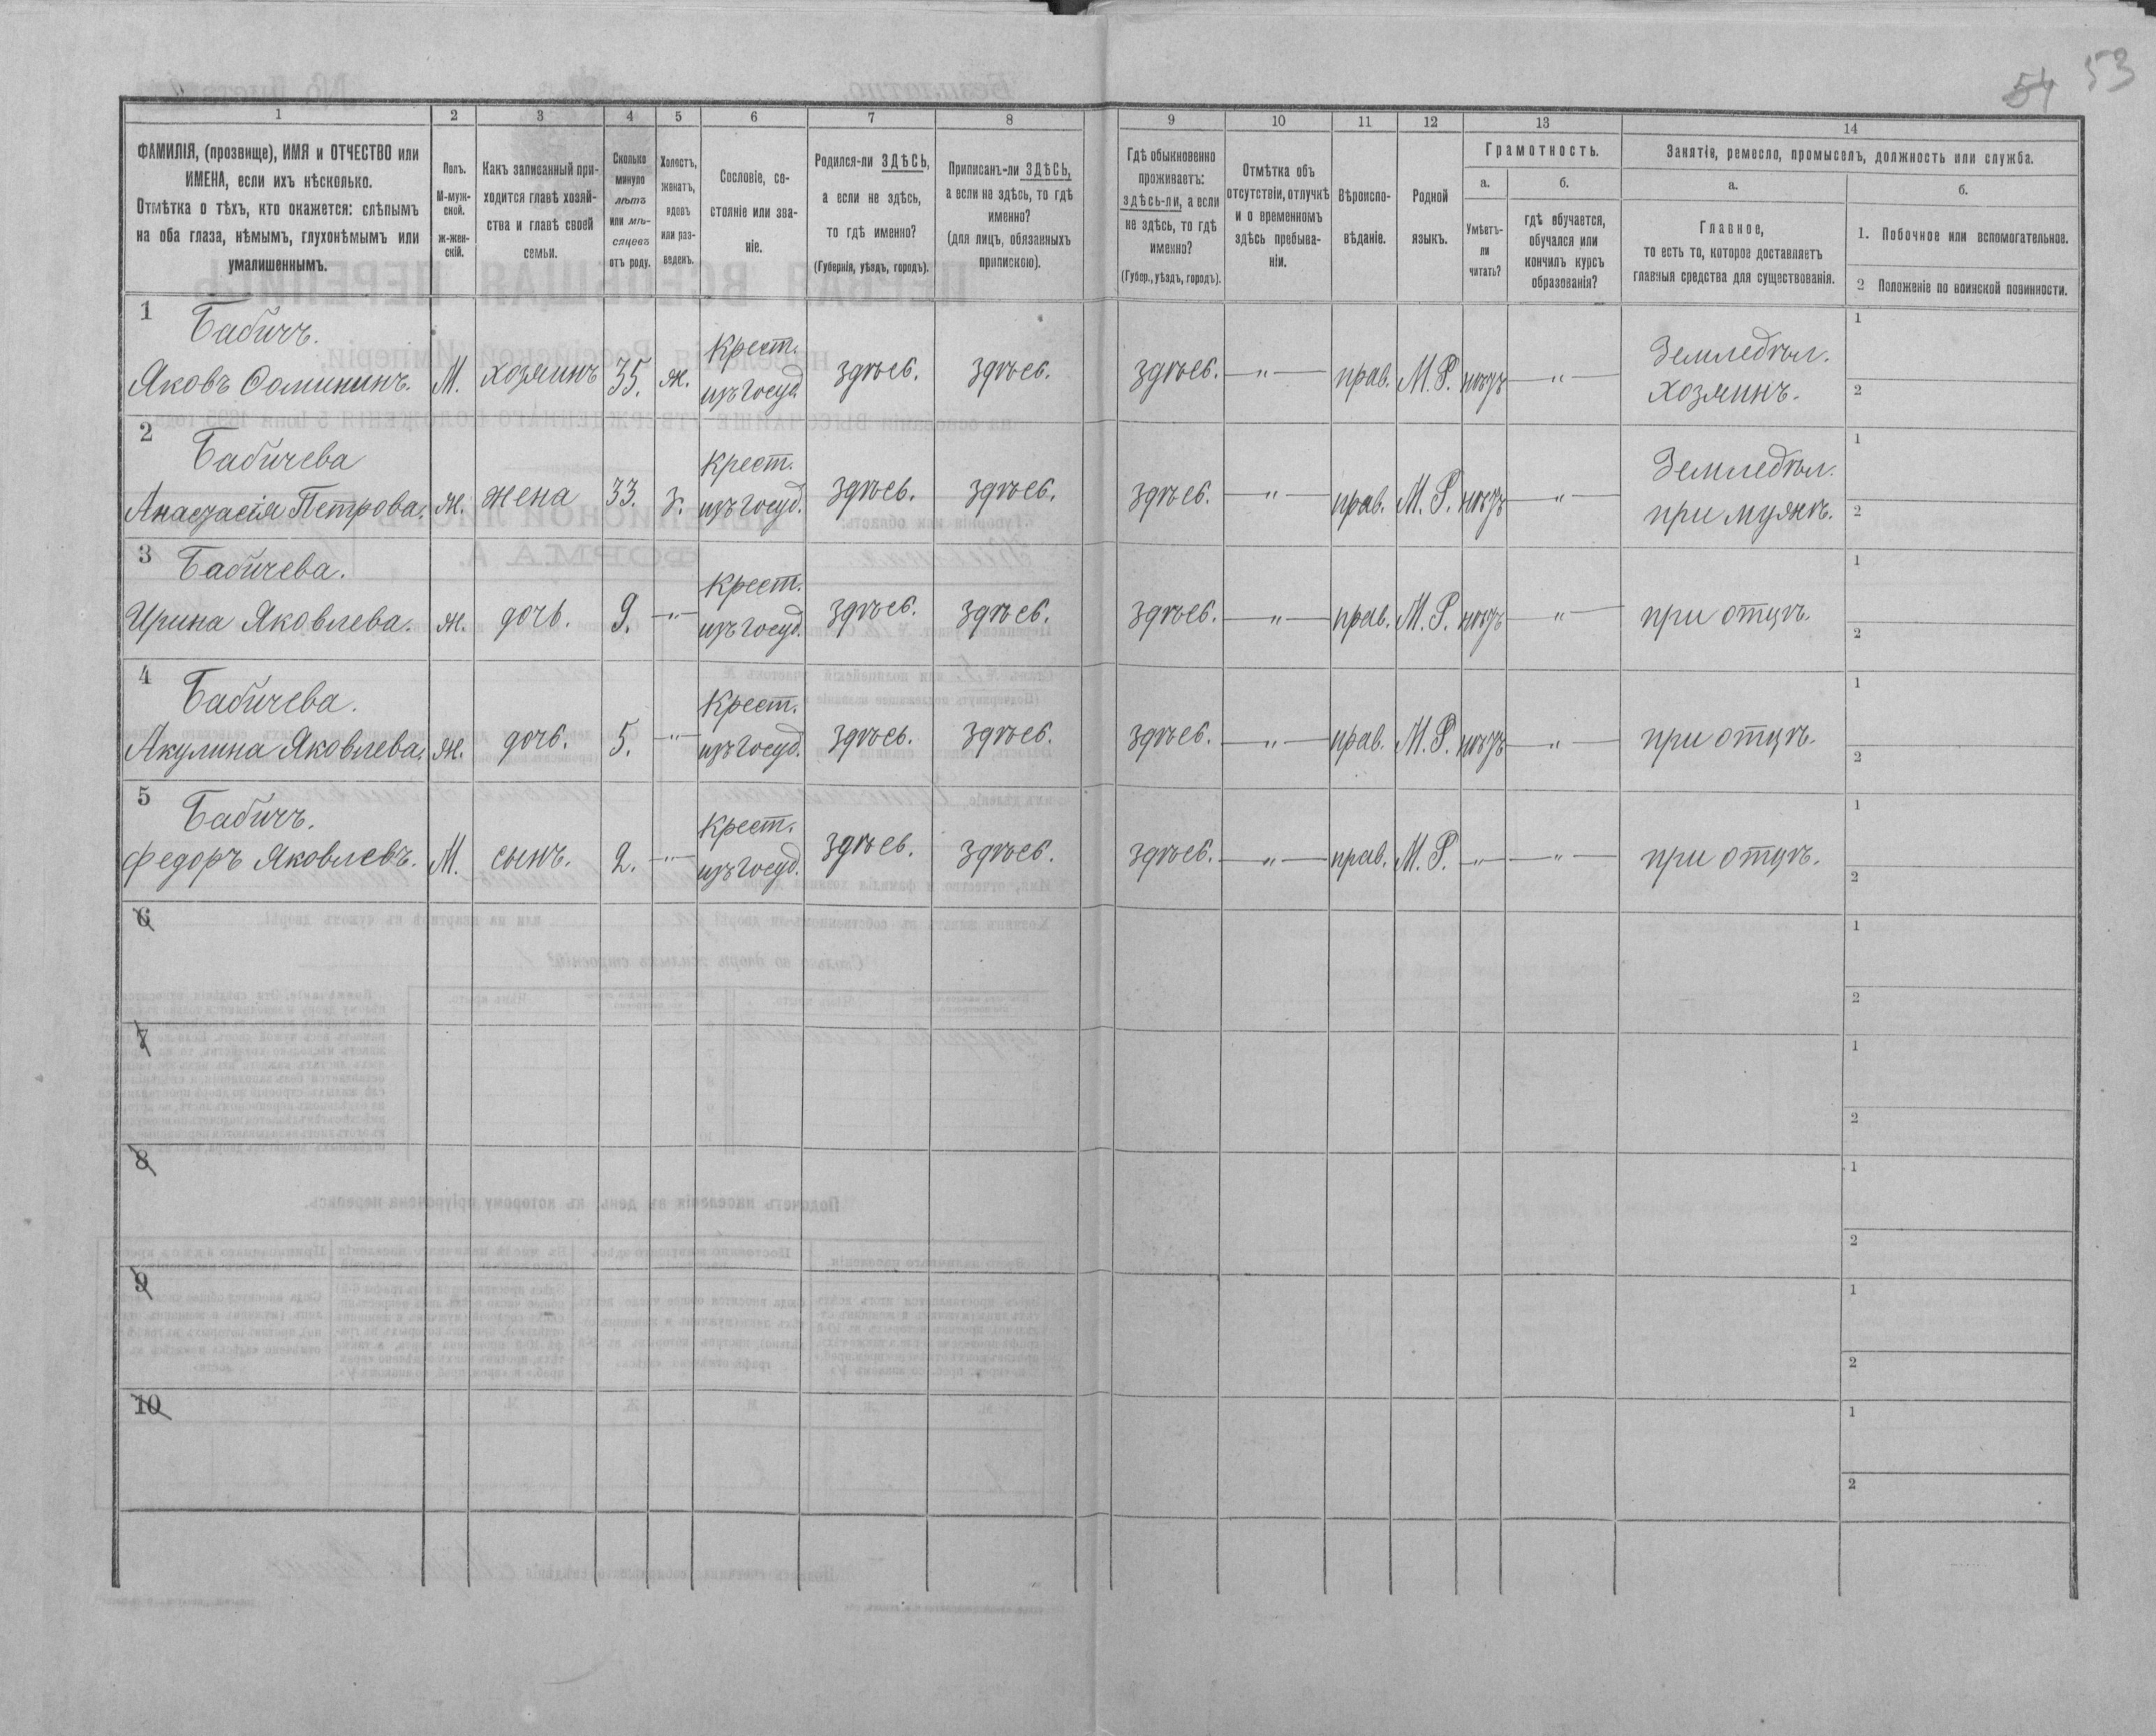 54 53
1 2 3 4 5 6 7 8 9 10 11 12 13 14
ФАМИЛІЯ, (прозвище), ИМЯ и ОТЧЕСТВО или
ИМЕНА, если ихъ нѣсколько.
Отмѣтка о тѣхъ, кто окажется: слѣпымъ
на оба глаза, нѣмымъ, глухонѣмымъ или
умалишеннымъ.
Полъ.
М-муж-
ской.
Ж-жен-
скій.
Какъ записанный при-
ходится главѣ хозяй-
ства и главѣ своей
семьи.
Сколько
минуло
лѣтъ
или мѣ-
сяцевъ
отъ роду.
Холостъ,
женатъ,
вдовъ
или раз-
веденъ.
Сословіе, со-
стояніе или зва-
ніе.
Родился-ли ЗДѢСЬ,
а если не здѣсь,
то гдѣ именно?
(Губернія, уѣздъ, городъ).
Приписанъ-ли ЗДѢСЬ,
а если не здѣсь, то гдѣ
именно?
(для лицъ, обязанныхъ
припискою).
Гдѣ обыкновенно
проживаетъ:
здѣсь-ли, а если
не здѣсь, то гдѣ
именно?
(Губер., уѣздъ, городъ).
Отмѣтка объ
отсутствіи, отлучкѣ
и о временномъ
здѣсь пребыва-
ніи.
Вѣроиспо-
вѣданіе.
Родной
языкъ.
Грамотность.
а.
Умѣетъ-
ли
читать?
б.
гдѣ обучается,
обучался или
кончилъ курсъ
образованія?
Занятіе, ремесло, промыселъ, должность или служба.
а.
Главное,
то есть то, которое доставляетъ
главныя средства для существованія.
б.
1. Побочное или вспомогательное.
2 Положеніе по воинской повинности.
1 Бабичъ. Крест. Земледѣл. 1
Яковъ М. хозяинъ 35. ж. изъ госуд. здѣсь. здѣсь. здѣсь. — " — прав. М.Р. нѣтъ — " — хозяинъ. 2
2 Бабичева Крест. Земледѣл. 1
Анастасія Петрова. ж. жена 33. з. изъ госуд. здѣсь. здѣсь. здѣсь. — " — прав. М.Р. нѣтъ — " — при мужѣ. 2
3 Бабичева. Крест. 1
Ирина Яковлева. ж. дочь. 9. — " — изъ госуд. здѣсь. здѣсь. здѣсь. — " — прав. М.Р. нѣтъ — " — при отцѣ. 2
4 Бабичева. Крест. 1
Акулина Яковлева. ж. дочь. 5. — " — изъ госуд. здѣсь. здѣсь. здѣсь. — " — прав. М.Р. нѣтъ — " — при отцѣ. 2
5 Бабичъ. Крест. 1
Федоръ Яковлевъ. М. сынъ. 2. — " — изъ госуд. здѣсь. здѣсь. здѣсь. — " — прав. М.Р. — " — — " — при отцѣ. 2
6 1
2
7 1
2
8 1
2
9 1
2
10 1
2